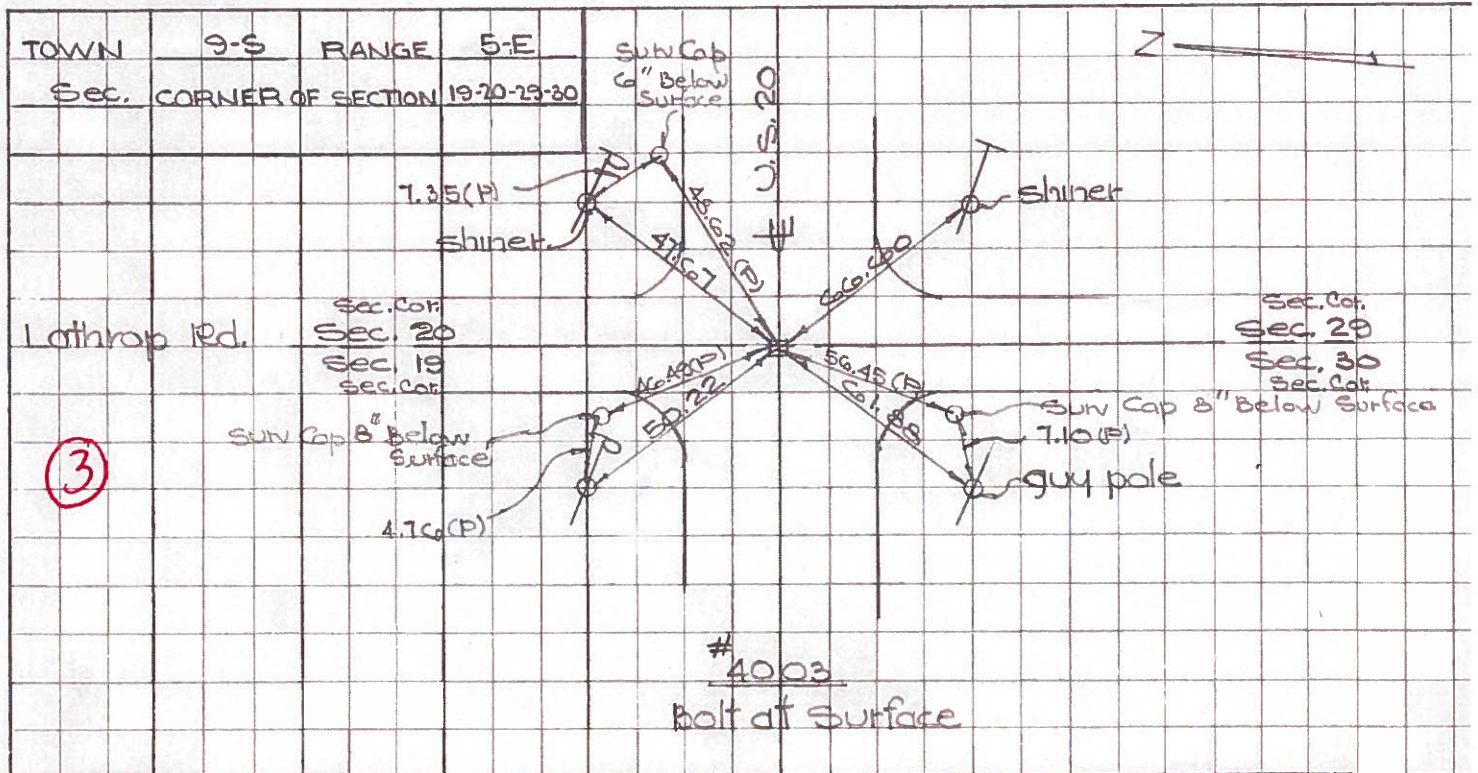 TOWN 9-S RANGE 5-E
Sec. CORNER OF SECTION 19-20-29-30
Surv Cap
6" Below
Surface
U.S. 20
Z
7.35(P)
shiner
shiner
47.67
48.62(P)
66.60
Lathrop Rd.
Sec. Cor.
Sec. 20
Sec. 19
Sec. Cor.
Sec. Cor.
Sec. 29
Sec. 30
Sec. Cor.
46.49(P)
50.22
56.45(P)
61.88
Surv Cap 8" Below
Surface
4.76(P)
Surv Cap 8" Below Surface
7.10(P)
guy pole
3
#4003
Bolt at Surface